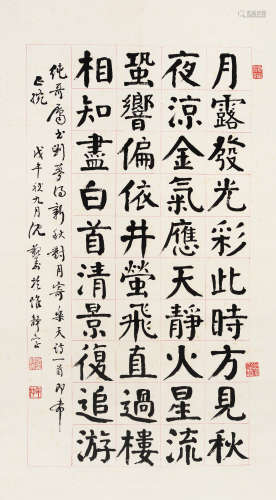 月露發光彩此時方見秋
夜涼金氣應天靜火星流
蛩響偏依井螢飛直過樓
相知盡白首清景復追游
純哥屬書劉夢得新秋對月寄樂天詩一首即希
戊午秋九月沈